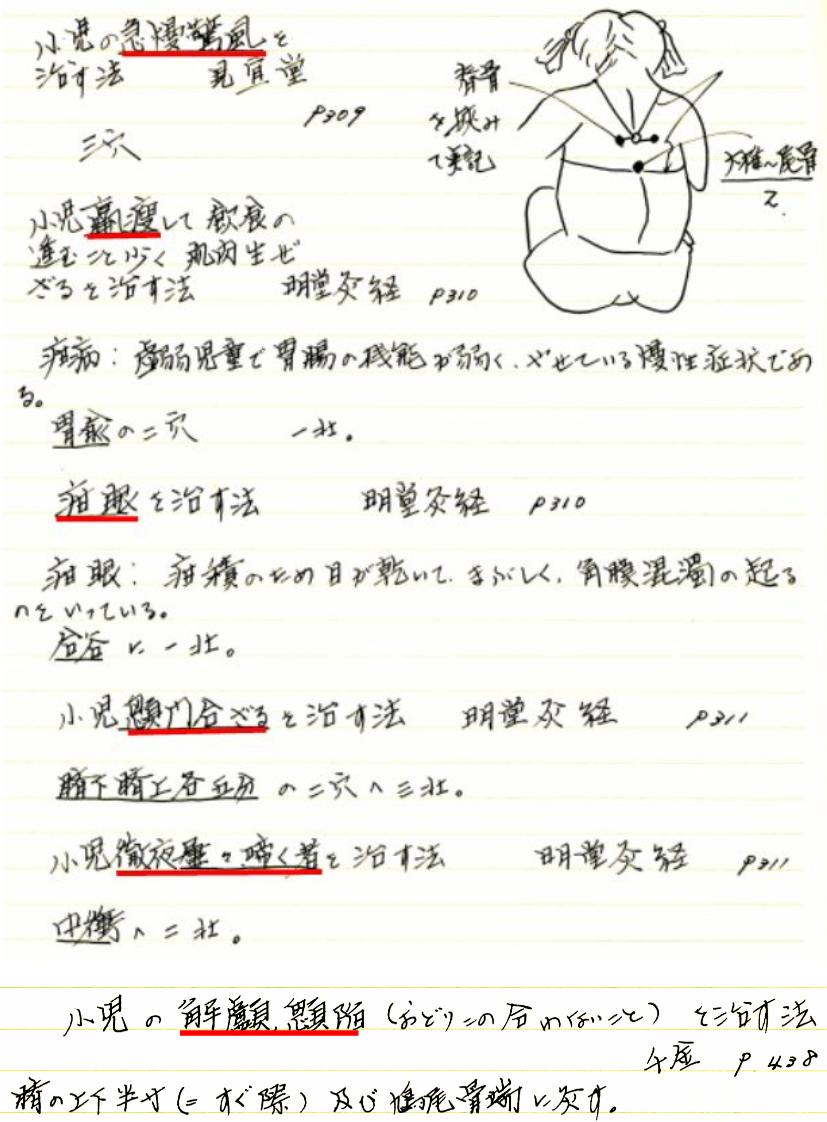 小児の急慢驚風を
治す法 見宜堂
P309
三穴
脊骨
を挟み
て実記
大椎〜尾骨
2
小児羸痩して飲食の
進むこと少く 肌肉生ぜ
ざるを治す法 明堂灸経 P310
疳病：虚弱児童で胃腸の機能が弱く、やせている慢性症状であ
る。
胃兪の二穴 一壮。
疳眼を治す法 明堂灸経 P310
疳眼：疳積のため目が乾いて、まぶしく、角膜混濁の起る
のをいっている。
合谷に一壮。
小児顖門合ざるを治す法 明堂灸経 P311
臍下臍上各五分の二穴へ三壮。
小児徹夜 啼く者を治す法 明堂灸経 P311
中衝へ二壮。
小児の解顱、顖陥（おどりこの合わないこと）を治す法
千金 P.438
臍の上下半寸（＝すぐ際）及び鳩尾骨端に灸す。